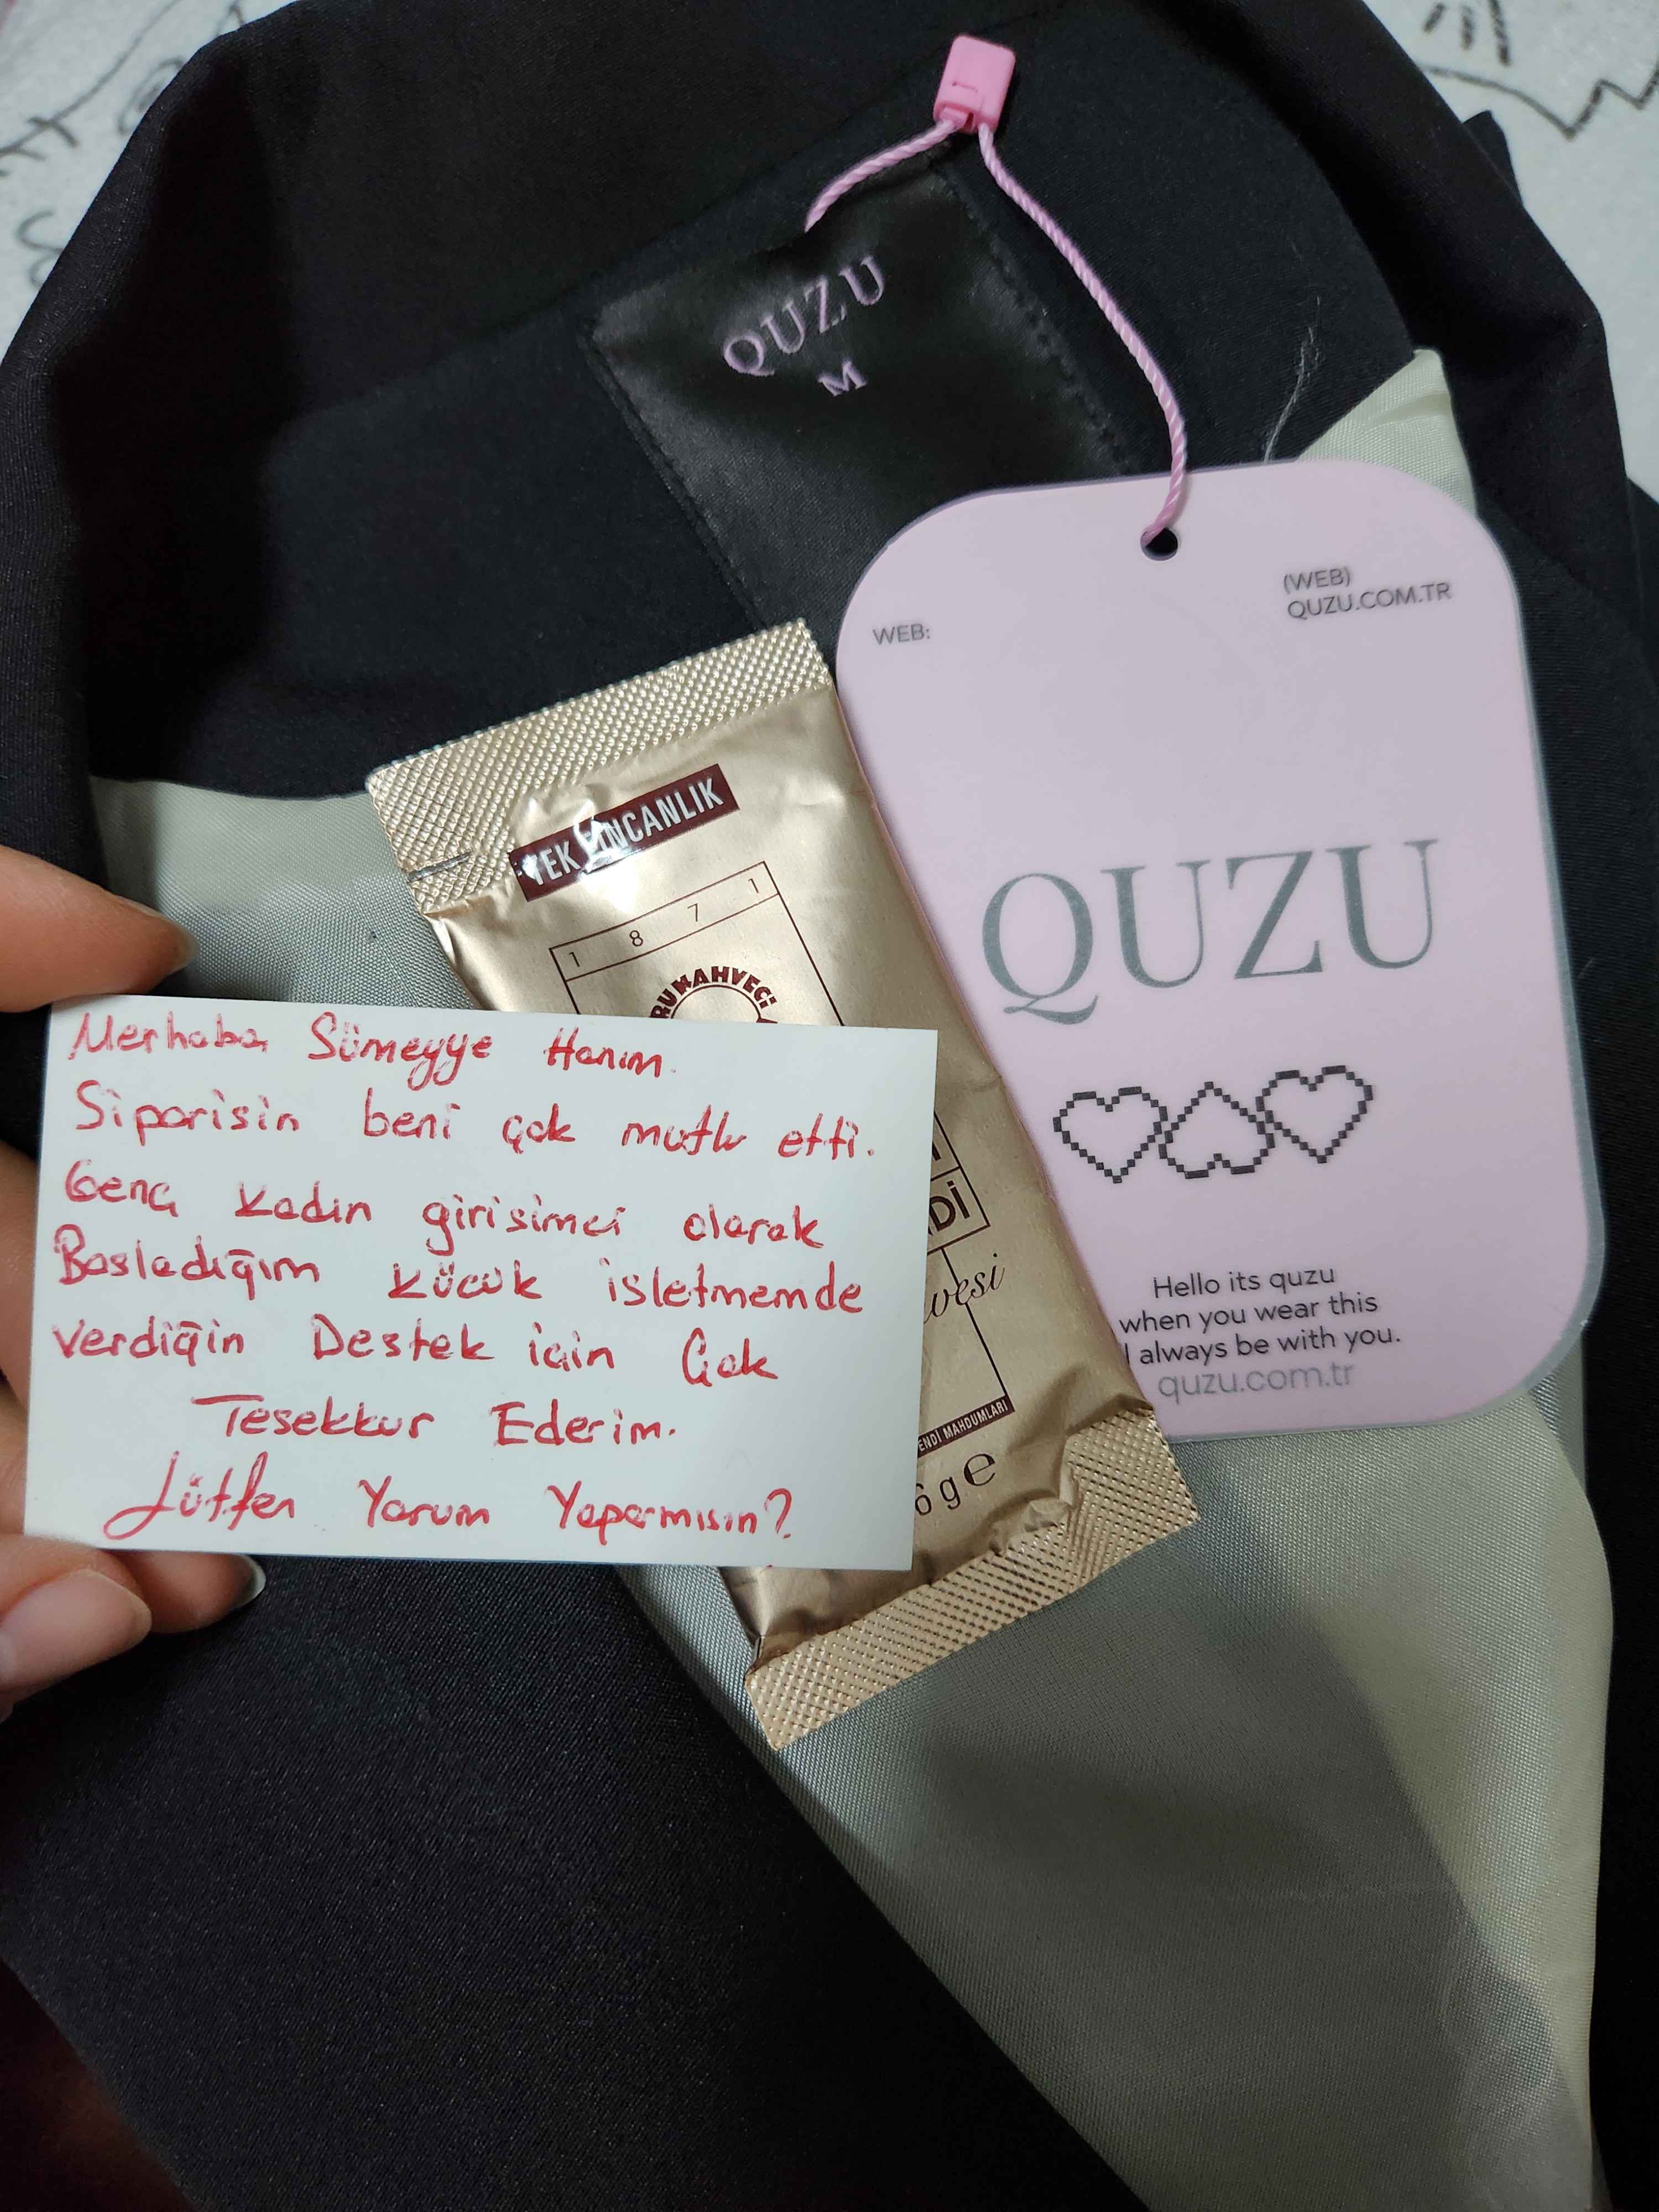 QUZU
M
(WEB)
QUZU.COM.TR
WEB:
QUZU
Hello its quzu
when you wear this
I always be with you.
quzu.com.tr
TEK FİNCANLIK
1 8 7 1
KURUKAHVECİ
Dİ
vesi
ENDİ MAHDUMLARI
6 g e
Merhaba Sümeyye Hanım.
Siparisin beni çok mutlu etti.
Genç Kadın girisimci olarak
Basladığım Küçük isletmemde
verdiğin Destek için Çok
Tesekkur Ederim.
Lütfen Yorum Yaparmısın?